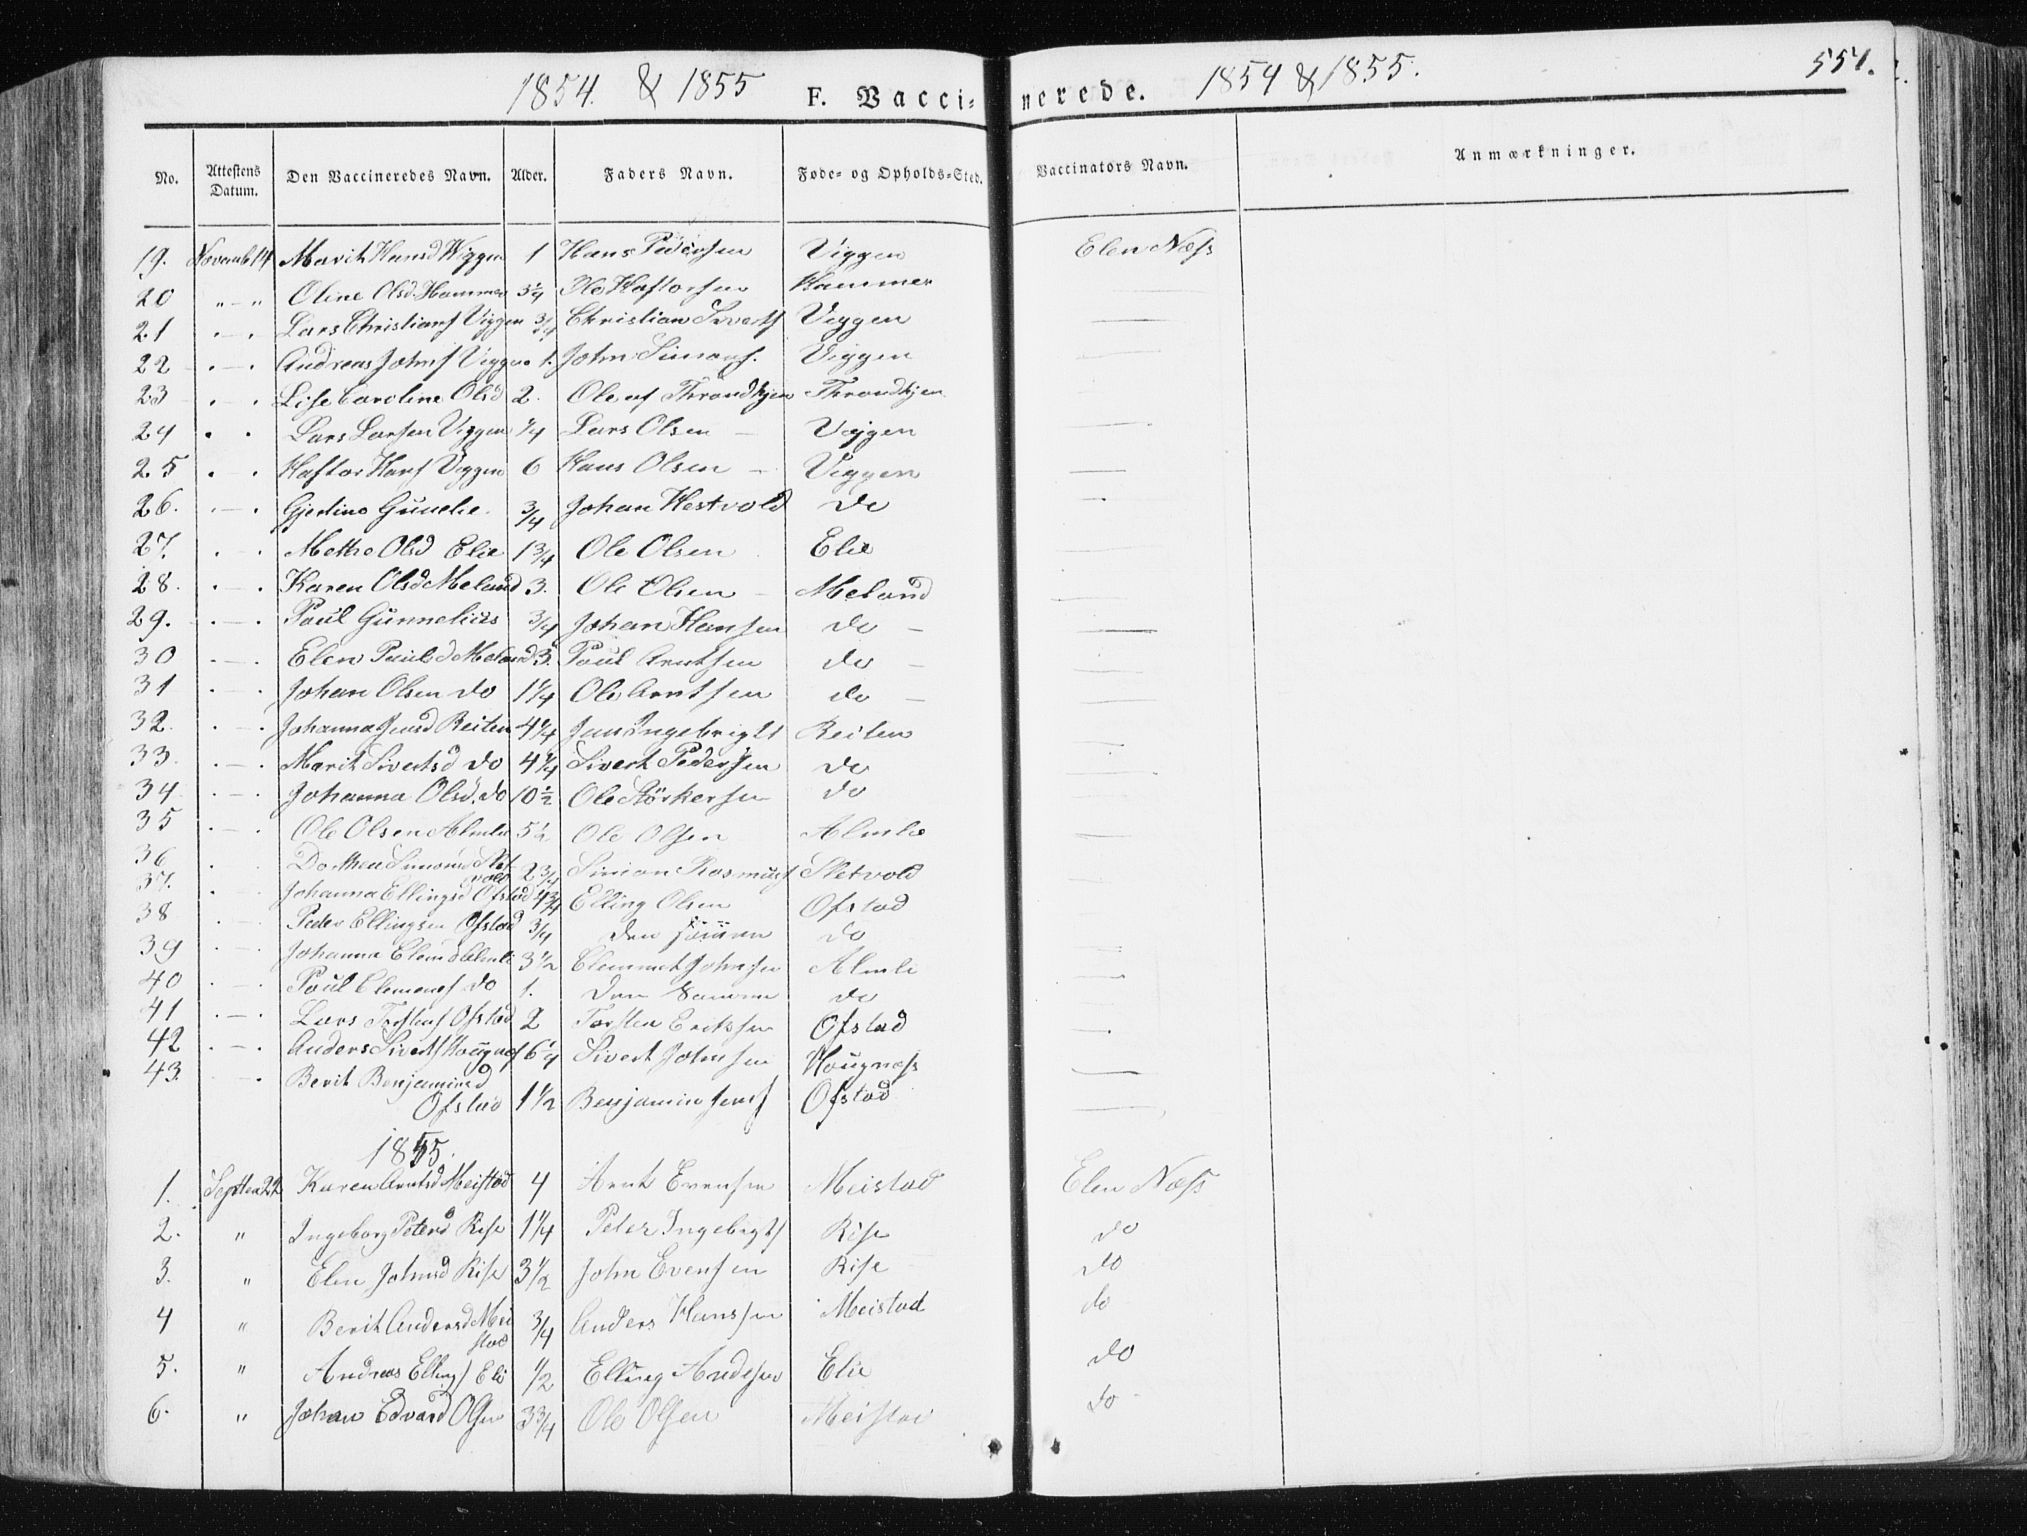 1854. & 1855 F. Vacci= nerede. 1854 & 1855. 551.
No. Attestens Datum. Den Vaccineredes Navn. Alder. Faders Navn. Føde= og Opholds=Sted. Vaccinators Navn. Anmærkninger.
19. Novemb 14 Marit Hansd Wiggen 1 Hans Pedersen Viggen Elen Næss
20 " — " Oline Olsd. Hammer 5 1/4 Ole Haftorsen Hammer —
21 " — " Lars Christians Viggen 3/4 Christian Siverts Viggen —
22 " — " Andreas Johns Viggen 1. John Simons. Viggen —
23 " " Lise Caroline Olsd 2. Ole af Throndhjem Throndhjem —
24 " " Lars Larsen Viggen 1/4 Lars Olsen — Viggen —
25 " " Haftor Hans Viggen 6 Hans Olsen — Viggen —
26. " — " Gjertine 3/4 Johan Hestvold do —
27. " — " Methe Olsd Elie 1 3/4 Ole Olsen Elie —
28. " — " Karen Olsd Meland 3. Ole Olsen — Meland —
29. " — " Paul Gunnelius 3/4 Johan Hansen do — —
30 " — " Elen Paulsd Meland 3. Paul Arntsen do — —
31 " — " Johan Olsen do 1 1/4 Ole Arntsen do — —
32. " — " Johanna Jensd Reiten 4 1/4 Jens Ingebrigts Reiten —
33. " — " Marit Sivertsd do 4 1/4 Sivert Pedersen do —
34 " — " Johanna Olsd. do 10 1/2 Ole Størkersen do —
35 " — " Ole Olsen Almlie 5 1/2 Ole Olsen Almlie —
36 " Dorthea Simonsd Sletvold 2 3/4 Simon Rasmus Sletvold —
37. " — " Johanna Ellingsd Ofstad 4 3/4 Elling Olsen Ofstad —
38 " — " Peder Ellingsen Ofstad 3/4 den samme do
39 " — " Johanna Clemd Almli 3 1/2 Clemmet Johnsen Almli —
40 " — " Paul Clemens do 1. Den Samme do —
41 " — " Lars Torstens Ofstad 2 Torsten Eriksen Ofstad —
42 " — " Anders Siverts Hougnes 6 1/4 Sivert Johnsen Hougnæss —
43. — " Berit Benjaminsd
Ofstad 1 1/2 Benjamin Jens Ofstad —
1855.
1. Septbr 22 Karen Arntsd Meistad 4 Arnt Evensen Meistad Elen Næss
2. " Ingeborg Petersd Rise 1 1/4 Peter Ingebrigts Rise do
3. " Elen Johnsd Rise 3 1/2 John Evensen Rise do
4 " Berit Andersd Meistad 3/4 Anders Hanssen Meistad do
5. " Andreas Ellings Eli 1/2 Elling Andersen Elie do
6. " Johan Edvard Olsen 3 3/4 Ole Olsen Meistad do